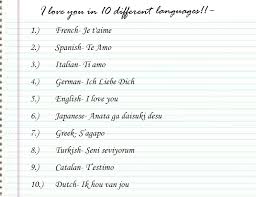 I love you in 10 different languages!!~
1.) French- Je t'aime
2.) Spanish- Te Amo
3.) Italian- Ti amo
4.) German- Ich Liebe Dich
5.) English- I love you
6.) Japanese- Anata ga daisuki desu
7.) Greek- S'agapo
8.) Turkish- Seni seviyorum
9.) Catalan- T'estimo
10.) Dutch- Ik hou van jou